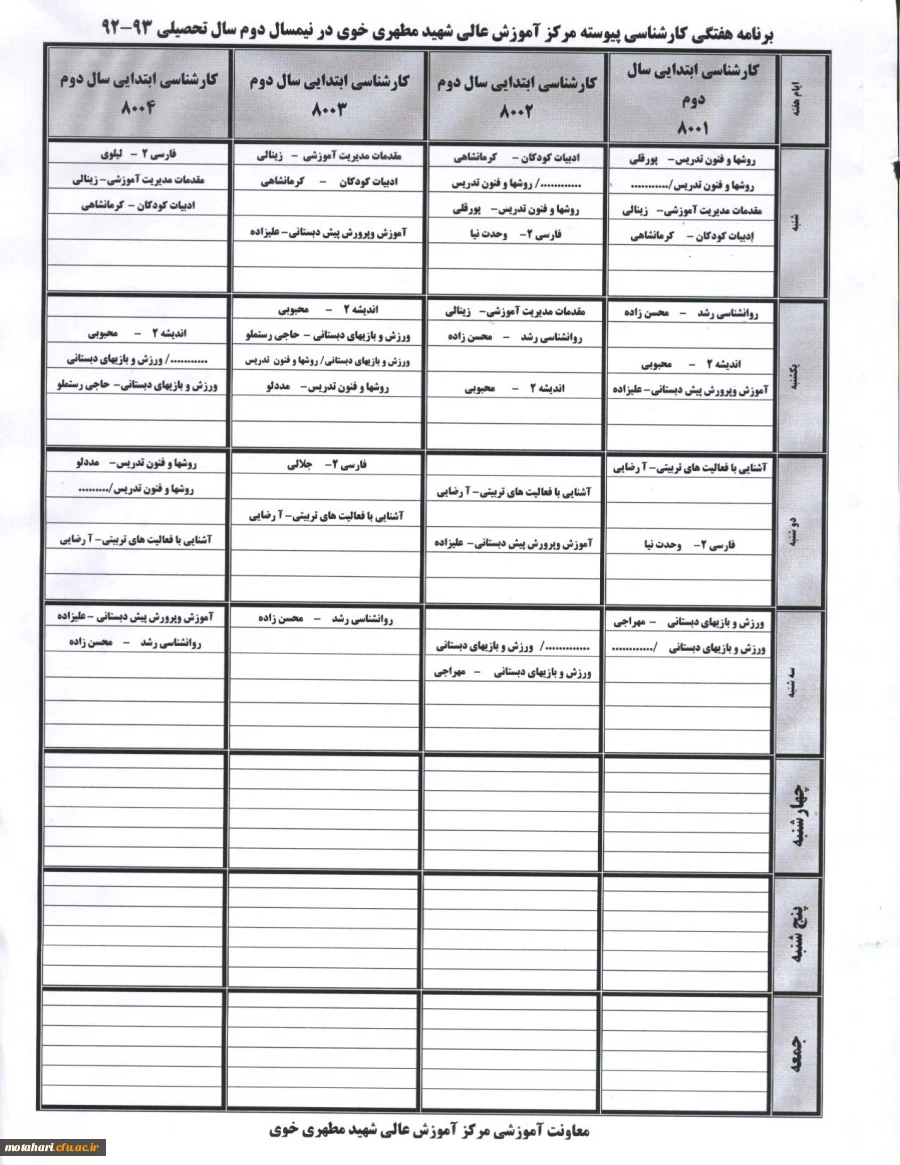 برنامه هفتگی کارشناسی پیوسته مرکز آموزش عالی شهید مطهری خوی در نیمسال دوم سال تحصیلی ۹۳-۹۲
ایام هفته
کارشناسی ابتدایی سال
دوم
۸۰۰۱
کارشناسی ابتدایی سال دوم
۸۰۰۲
کارشناسی ابتدایی سال دوم
۸۰۰۳
کارشناسی ابتدایی سال دوم
۸۰۰۴
شنبه
روشها و فنون تدریس- پورقلی
روشها و فنون تدریس/...........
مقدمات مدیریت آموزشی- زینالی
ادبیات کودکان - کرمانشاهی
ادبیات کودکان - کرمانشاهی
............/ روشها و فنون تدریس
روشها و فنون تدریس- پورقلی
فارسی ۲- وحدت نیا
مقدمات مدیریت آموزشی - زینالی
ادبیات کودکان - کرمانشاهی
آموزش وپرورش پیش دبستانی-علیزاده
فارسی ۲ - لیلوی
مقدمات مدیریت آموزشی-زینالی
ادبیات کودکان - کرمانشاهی
یکشنبه
روانشناسی رشد - محسن زاده
اندیشه ۲ - محبوبی
آموزش وپرورش پیش دبستانی-علیزاده
مقدمات مدیریت آموزشی- زینالی
روانشناسی رشد - محسن زاده
اندیشه ۲ - محبوبی
اندیشه ۲ - محبوبی
ورزش و بازیهای دبستانی - حاجی رستملو
ورزش و بازیهای دبستانی/ روشها و فنون تدریس
روشها و فنون تدریس- مددلو
اندیشه ۲ - محبوبی
.........../ ورزش و بازیهای دبستانی
ورزش و بازیهای دبستانی- حاجی رستملو
دو شنبه
آشنایی با فعالیت های تربیتی- آ رضایی
فارسی ۲- وحدت نیا
آشنایی با فعالیت های تربیتی- آ رضایی
آموزش وپرورش پیش دبستانی- علیزاده
فارسی ۲- جلالی
آشنایی با فعالیت های تربیتی- آ رضایی
روشها و فنون تدریس- مددلو
روشها و فنون تدریس/.........
آشنایی با فعالیت های تربیتی- آ رضایی
سه شنبه
ورزش و بازیهای دبستانی - مهراجی
ورزش و بازیهای دبستانی /............
............./ ورزش و بازیهای دبستانی
ورزش و بازیهای دبستانی - مهراجی
روانشناسی رشد - محسن زاده
آموزش وپرورش پیش دبستانی -علیزاده
روانشناسی رشد - محسن زاده
چهارشنبه
پنج شنبه
جمعه
معاونت آموزشی مرکز آموزش عالی شهید مطهری خوی
motahari.cfu.ac.ir